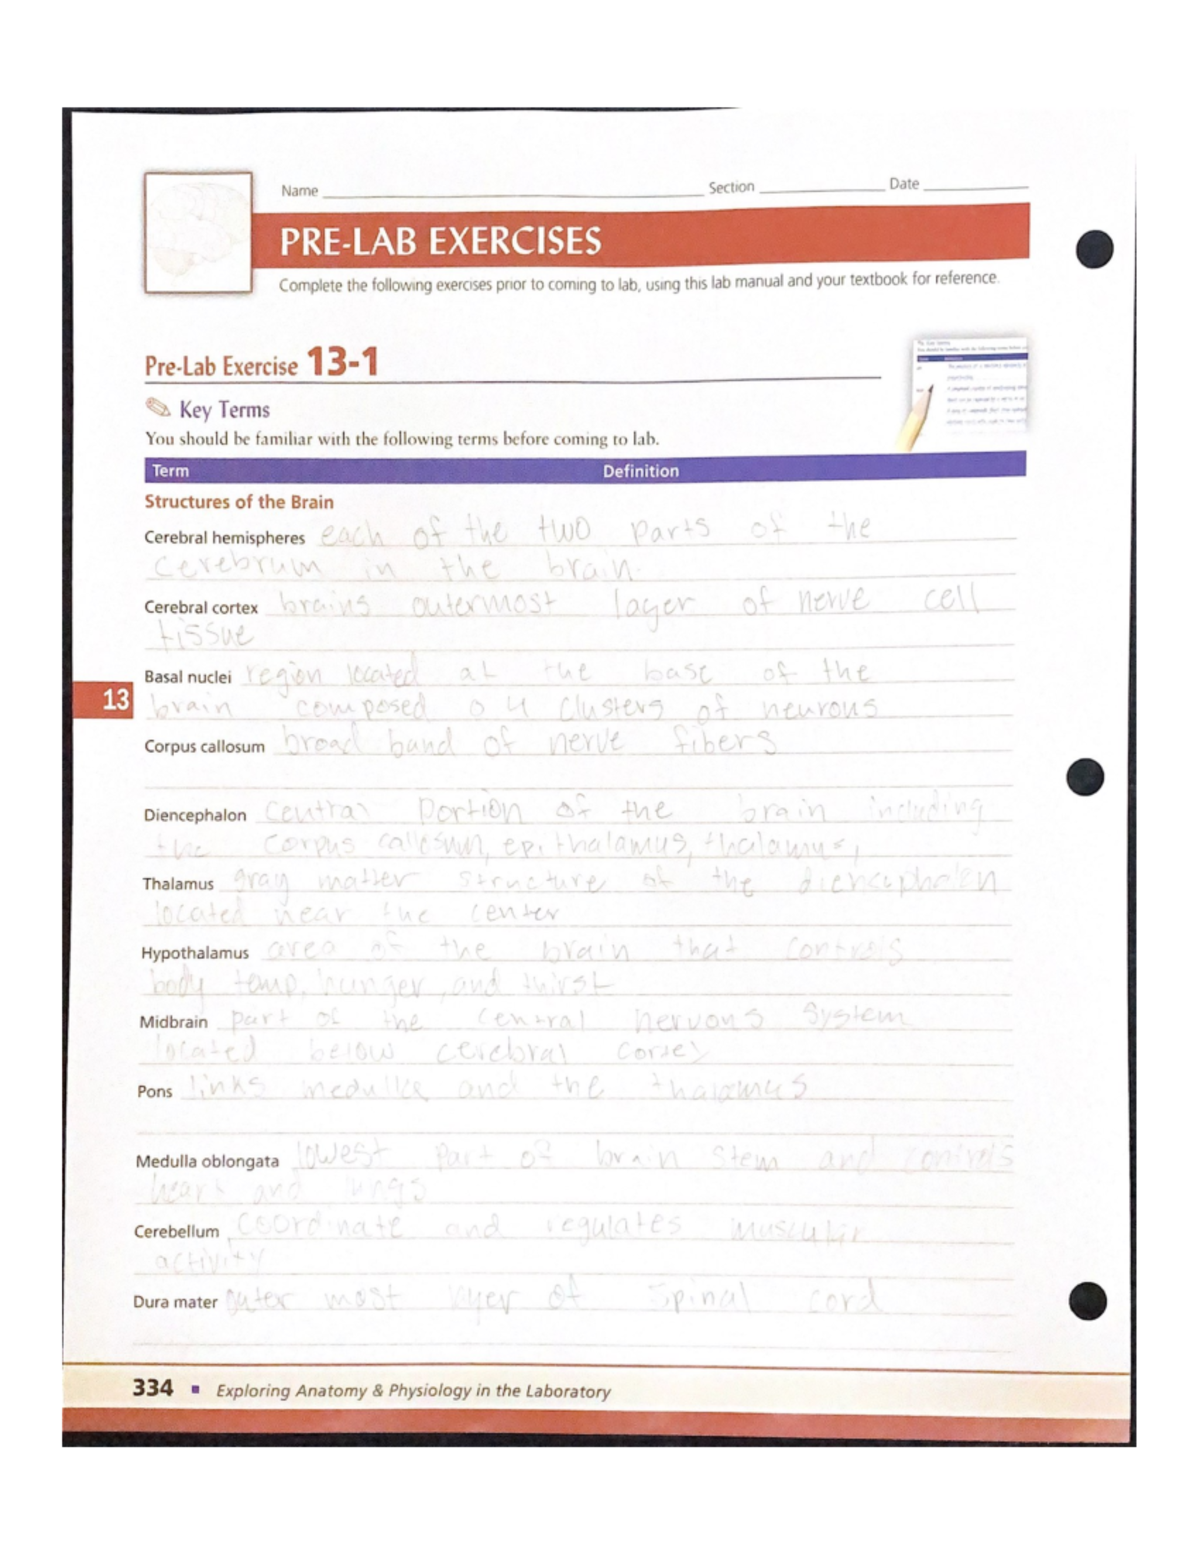 Name Section Date
PRE-LAB EXERCISES
Complete the following exercises prior to coming to lab, using this lab manual and your textbook for reference.
Pre-Lab Exercise 13-1
Key Terms
You should be familiar with the following terms before coming to lab.
Term Definition
Structures of the Brain
Cerebral hemispheres each of the two parts of the
cerebrum in the brain.
Cerebral cortex brains outermost layer of nerve cell
tissue
Basal nuclei region located at the base of the
13
brain composed o 4 clusters of neurons
Corpus callosum broad band of nerve fibers
Diencephalon central portion of the brain including
the corpus callosum, epithalamus, thalamus,
Thalamus gray matter structure of the diencephalon
located near the center
Hypothalamus area of the brain that controls
body temp, hunger, and thirst
Midbrain part of the central nervous system
located below cerebral
Pons links medulla and the thalamus
Medulla oblongata lowest part of brain stem and controls
heart and lungs
Cerebellum coordinate and regulates muscular
activity
Dura mater outer most layer of spinal cord
334 ▪ Exploring Anatomy & Physiology in the Laboratory